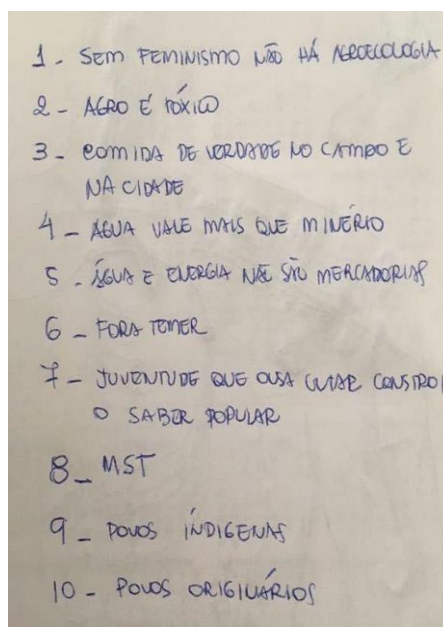 1 - SEM FEMINISMO NÃO HÁ AGROECOLOGIA
2 - AGRO É TÓXICO
3 - COMIDA DE VERDADE NO CAMPO E
NA CIDADE
4 - ÁGUA VALE MAIS QUE MINÉRIO
5 - ÁGUA E ENERGIA NÃO SÃO MERCADORIAS
6 - FORA TEMER
7 - JUVENTUDE QUE OUSA LUTAR CONSTROI
O SABER POPULAR
8 - MST
9 - POVOS ÍNDIGENAS
10 - POVOS ORIGINÁRIOS